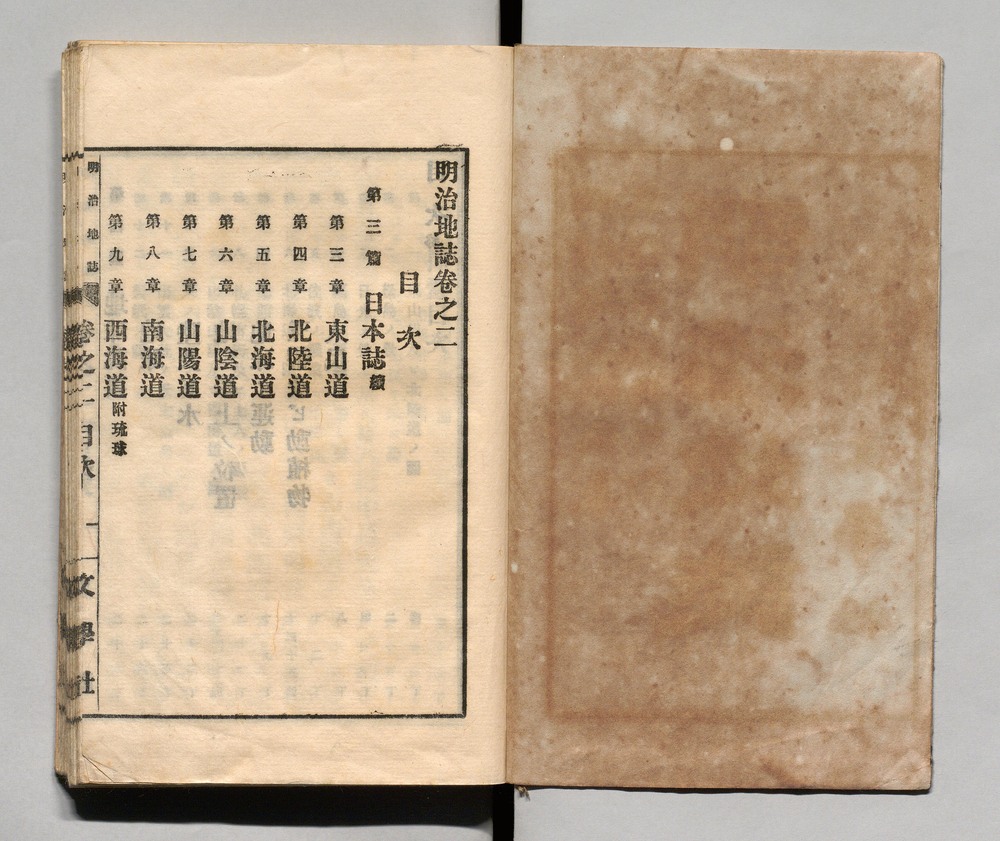 明治地誌卷之二
目次
第三篇 日本誌續
第三章 東山道
第四章 北陸道
第五章 北海道
第六章 山陰道
第七章 山陽道
第八章 南海道
第九章 西海道附琉球
明治地誌 卷之二 目次 一 文學社